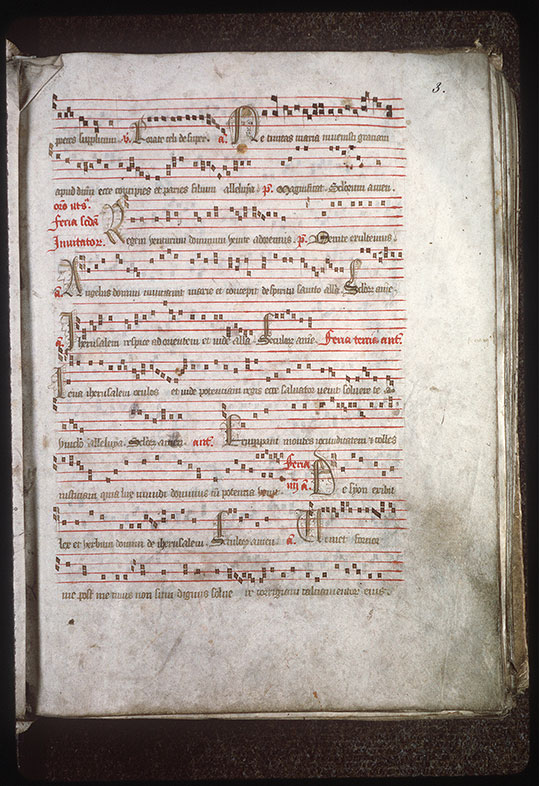 3.
supplicum. v. Rorate celi desuper. a. Ne timeas maria invenisti graciam
apud dnm ecce concipies et paries filium alleluya. p. Magnificat. Sclorum amen.
Feria scda
Invitator. Regem venturum dominum venite adoremus. p. Venite exultemus.
a. Angelus domini nunciavit marie et concepit de spiritu sancto alla. Sclor ame.
a. Iherusalem respice ad orientem et vide alla. Seculor ame. Feria tercia ant.
Leva iherusalem oculos et vide potenciam regis ecce salvator venit solvere te a
vinclo alleluya. Sclor amen. ant. Erumpant montes iocunditatem t colles
Feria
iusticiam quia lux mundi dominus in potencia venit. iiij a. De syon exibit
lex et verbum domini de iherusalem. Seculor amen. a. Veniet forcior
me post me cuius non sum dignus solve re corrigiam calciamentor eius.